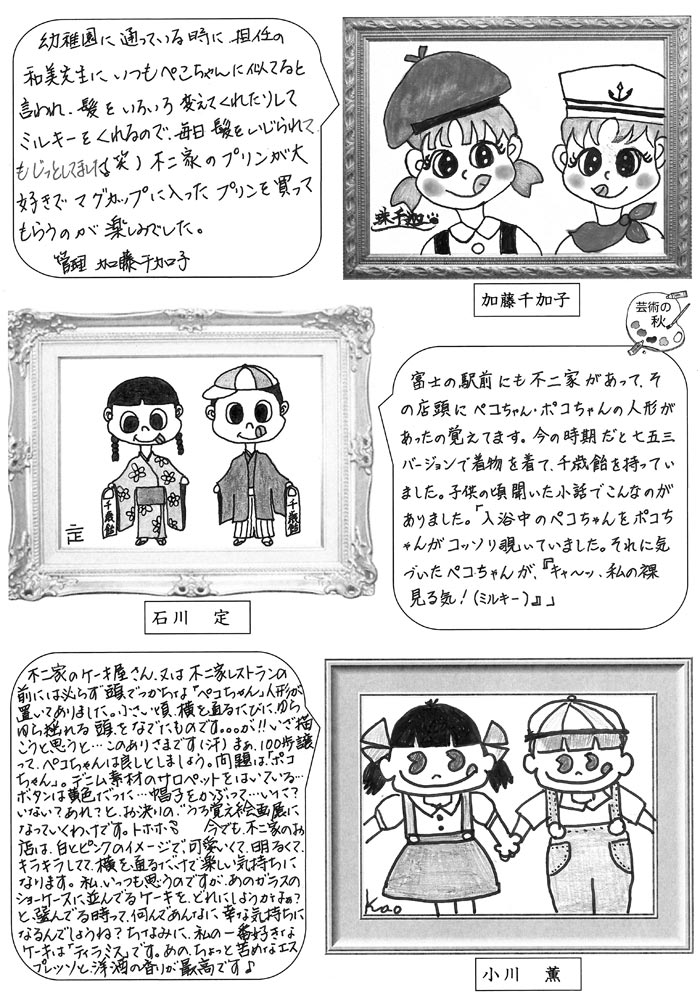 幼稚園に通っている時に担任の
和美先生にいつもペコちゃんに似てると
言われ、髪をいろいろ変えてくれたりして
ミルキーをくれるので、毎日髪をいじられて
もじっとしてました(笑)不二家のプリンが大
好きでマグカップに入ったプリンを買って
もらうのが楽しみでした。
管理 加藤千加子
千加
加藤千加子
芸術の
秋
富士の駅前にも不二家があって、そ
の店頭にペコちゃん・ポコちゃんの人形が
あったの覚えてます。今の時期だと七五三
バージョンで着物を着て、千歳飴を持ってい
ました。子供の頃聞いた小話でこんなのが
ありました。「入浴中のペコちゃんをポコち
ゃんがコッソリ覗いていました。それに気
づいたペコちゃんが、『キャ〜ッ、私の裸
見る気!(ミルキー)』」
千歳飴
千歳飴
定
石川 定
不二家のケーキ屋さん、又は不二家レストランの
前には必らず頭でっかちな「ペコちゃん」人形が
置いてありました。小さい頃、横を通るたびに、ゆら
ゆら揺れる頭をなでたものです。。。が!!いざ描
こうと思うと…このありさまです(汗)まぁ、100歩譲
って、ペコちゃんは良しとしましょう。問題は「ポコ
ちゃん」。デニム素材のサロペットをはいている…
ボタンは黄色だった…帽子をかぶって…いた?
いない?あれ?と、お決りの"うろ覚え絵画展に
なっていくわけです。トホホ 今でも、不二家のお
店は、白とピンクのイメージで、可愛いくて、明るくて、
キラキラしてて、横を通るだけで楽しい気持ちに
なります。私、いっつも思うのですが、あのガラスの
ショーケースに並んでるケーキを、どれにしようかなぁ?
と、選んでる時って、何んであんなに幸な気持ちに
なるんでしょうね?ちなみに、私の一番好きな
ケーキは「ティラミス」です。あの、ちょっと苦めなエス
プレッソと、洋酒の香りが最高です♪
Kao
小川 薫